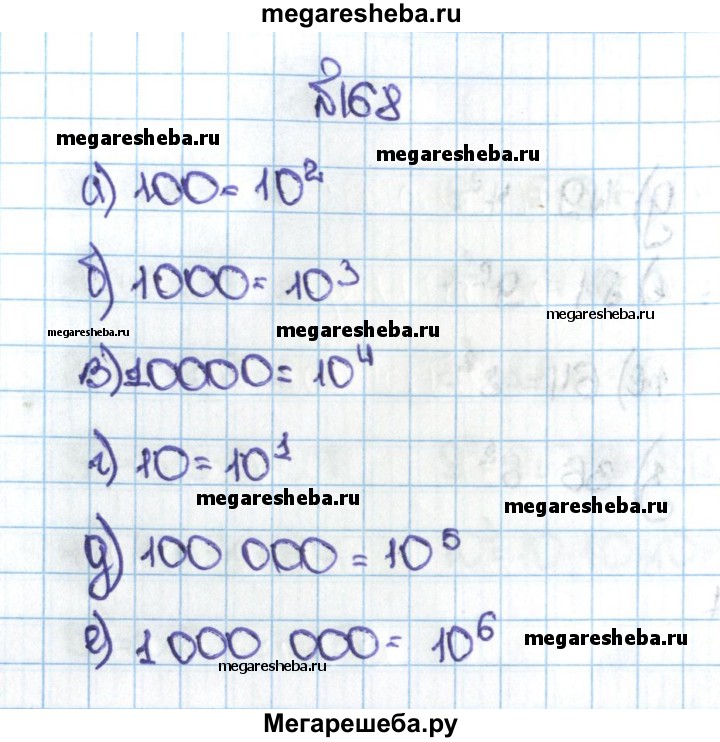 megaresheba.ru
№168
megaresheba.ru
megaresheba.ru
а) 100 = 10²
б) 1000 = 10³
megaresheba.ru
megaresheba.ru
megaresheba.ru
в) 10000 = 10⁴
г) 10 = 10¹
megaresheba.ru
megaresheba.ru
д) 100 000 = 10⁵
е) 1 000 000 = 10⁶
megaresheba.ru
megaresheba.ru
Мегарешеба.ру